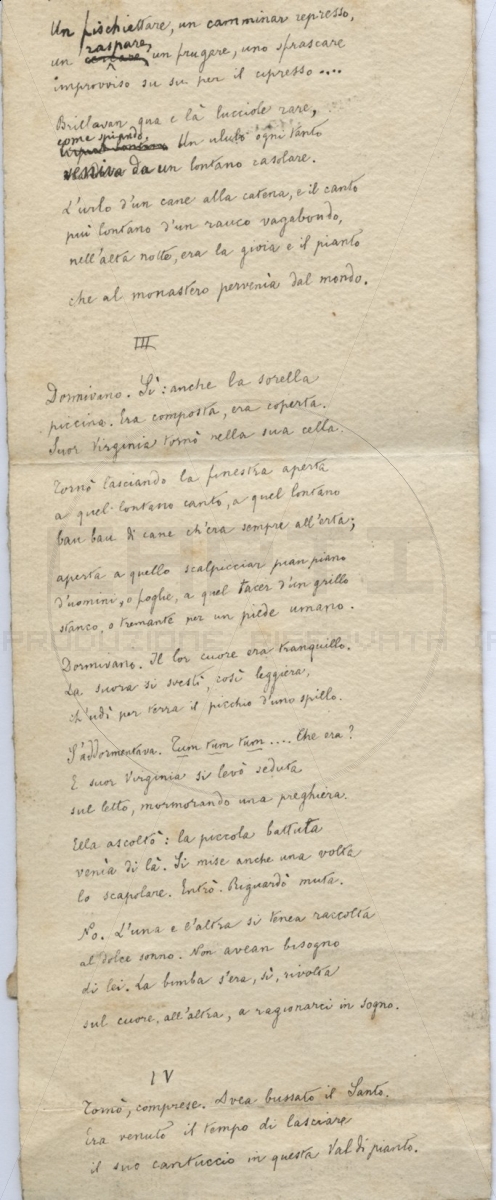 Un fischiettare, un camminar represso,
raspare,
un cercare, un frugare, uno sfrascare
improvviso su su per il cipresso....
Brillavan qua e là lucciole rare,
come spirando,
Un ululo ogni tanto
veniva da un lontano casolare.
L'urlo d'un cane alla catena, e il canto
più lontano d'un rauco vagabondo,
nell'alta notte, era la gioia e il pianto
che al monastero pervenìa dal mondo.
III
Dormivano. Sì: anche la sorella
piccina. Era composta, era coperta.
Suor Virginia tornò nella sua cella.
Tornò lasciando la finestra aperta
a quel lontano canto, a quel lontano
bau bau di cane ch'era sempre all'erta;
aperta a quello scalpicciar pian piano
d'uomini, o foglie, a quel tacer d'un grillo
stanco, o tremante per un piede umano.
Dormivano. Il lor cuore era tranquillo.
La suora si svestì, così leggiera,
ch'udì per terra il picchio d'uno spillo.
S'addormentava. Tum tum tum.... Che era?
E suor Virginia si levò seduta
sul letto, mormorando una preghiera.
Ella ascoltò: la piccola battuta
venìa di là. Si mise anche una volta
lo scapolare. Entrò. Riguardò muta.
No. L'una e l'altra si tenea raccolta
al dolce sonno. Non avean bisogno
di lei. La bimba s'era, sì, rivolta
sul cuore, all'altra, a ragionarci in sogno.
IV
Tornò, comprese. Avea bussato il Santo.
Era venuto il tempo di lasciare
il suo cantuccio in questa Val di pianto.